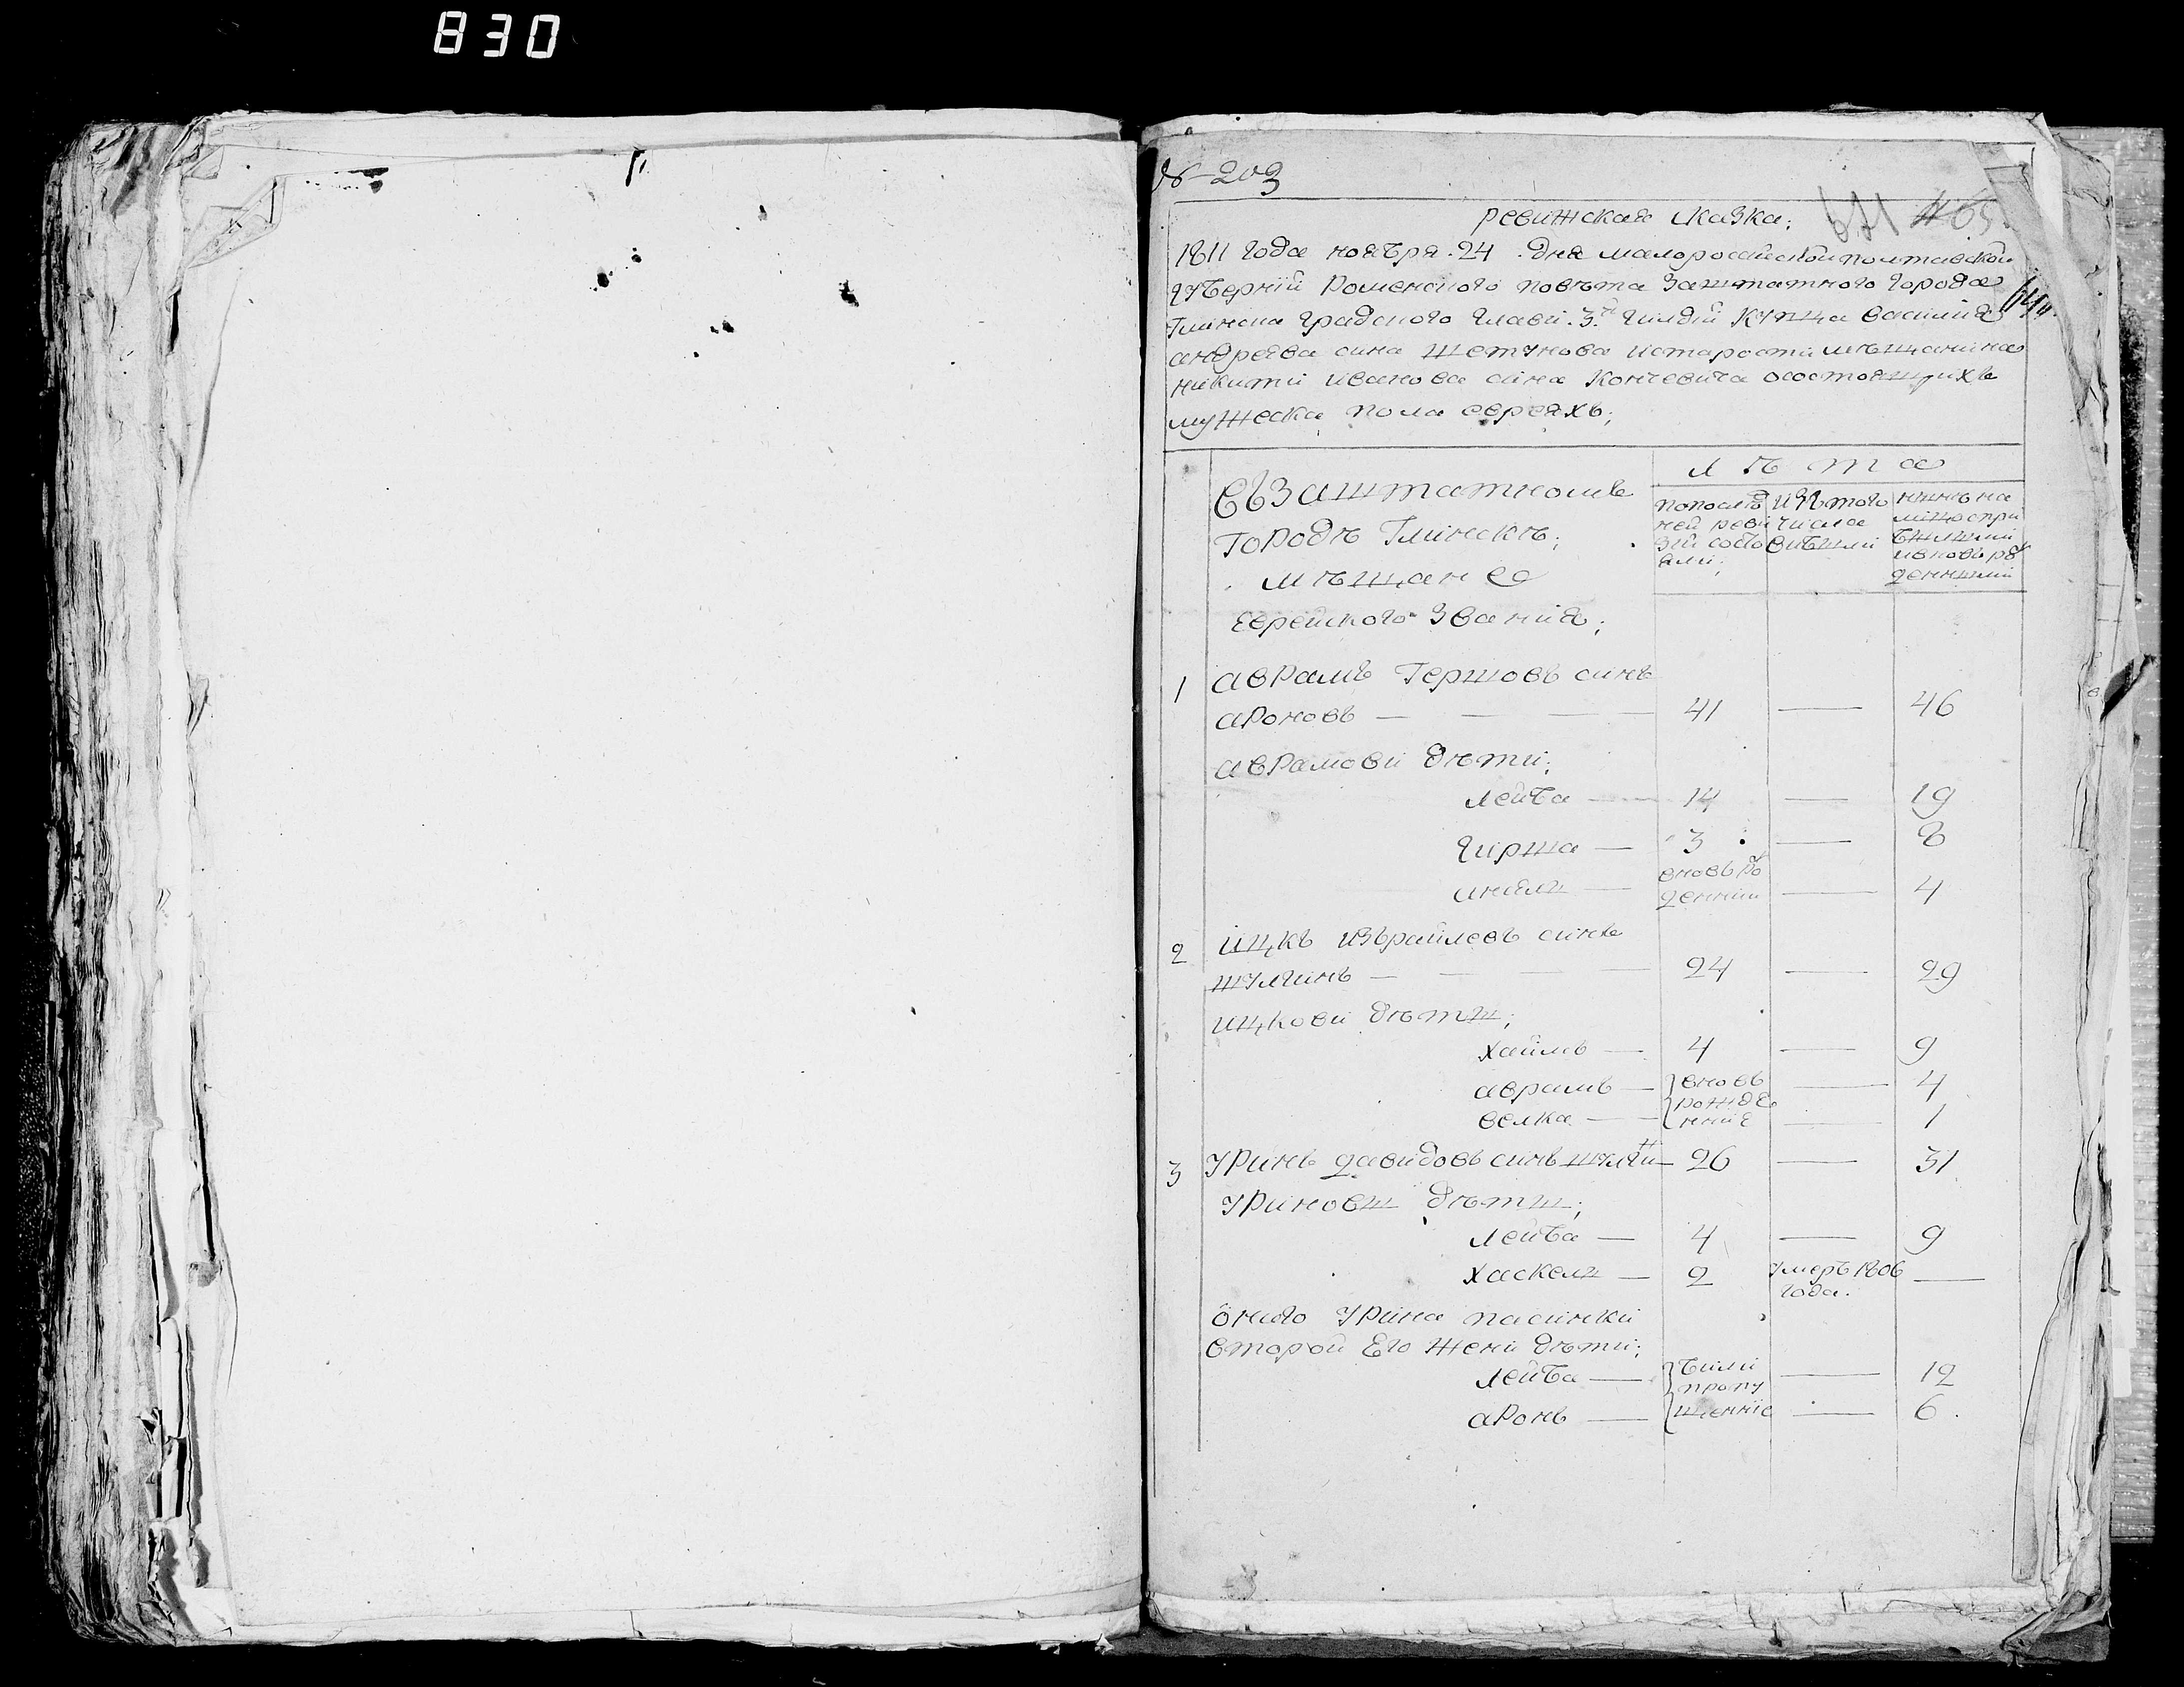 830
№ 203
ревижская сказка;
1811 года ноября 24 дня малороссийской полтавской
губернїй Роменского повѣта Заштатного города
Глинска градского главї 3й гилдїй купца василїя
андреева сина Шетунова истаростї мѣщанина
никитї иванова сина Кончевича осостоящихъ
мужеска пола евреяхъ;
Въ Заштатномъ
городѣ Глинскѣ;
мѣщане
еврейского званїя;
лѣта
попослѣдней ревизїй состояли;
изътого числа вибили
нинѣ на лицо съ прибилими и вновь рожденними
1 аврамъ Гершовъ синъ
ароновъ — 41 — 46
аврамови дѣти;
лейба — 14 — 19
гирша — 3 — 8
вновь рожденний — 4
2 ицкъ изъраилевъ синъ
шулгинъ — 24 — 29
ицкови дѣти;
хаимъ — 4 — 9
аврамъ — вновь — 4
велка — рожденние — 1
3 Уринъ давидовъ синъ шулгинъ 26 — 31
Уринови дѣти;
лейба — 4 — 9
хаскель — 2 умеръ 1806 года. —
оного Урина пасинки
второй его жени дѣти;
лейба — били — 12
аронъ — пропущеннїе — 6